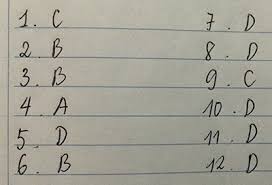 1. C
2. B
3. B
4. A
5. D
6. B
7. D
8. D
9. C
10. D
11. D
12. D